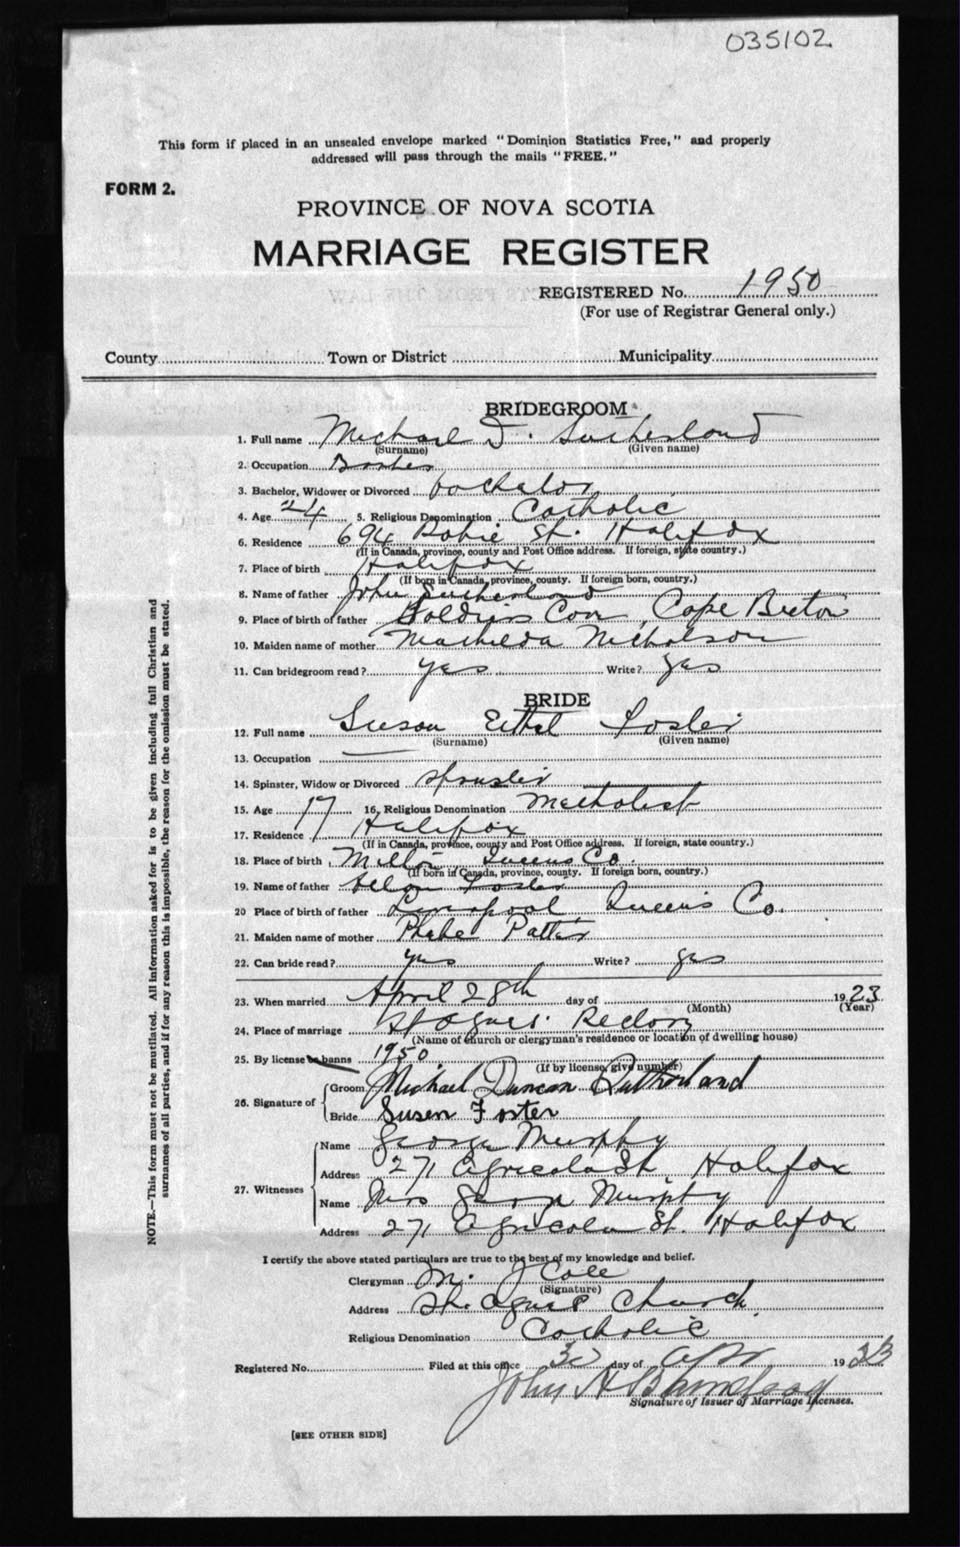 035102
This form if placed in an unsealed envelope marked "Dominion Statistics Free," and properly
addressed will pass through the mails "FREE."
FORM 2.
PROVINCE OF NOVA SCOTIA
MARRIAGE REGISTER
REGISTERED No. 1950
(For use of Registrar General only.)
County Town or District Municipality
BRIDEGROOM
1. Full name Michael D. Sutherland
(Surname) (Given name)
2. Occupation
3. Bachelor, Widower or Divorced bachelor
4. Age 24 5. Religious Denomination Catholic
6. Residence 694 Robie St. Halifax
(If in Canada, province, county and Post Office address. If foreign, state country.)
7. Place of birth Halifax
(If born in Canada, province, county. If foreign born, country.)
8. Name of father John Sutherland
9. Place of birth of father Soldiers Cove, Cape Breton
10. Maiden name of mother Mathilda Nicholson
11. Can bridegroom read? yes Write? yes
BRIDE
12. Full name Susan Ethel Foster
(Surname) (Given name)
13. Occupation
14. Spinster, Widow or Divorced spinster
15. Age 17 16. Religious Denomination Methodist
17. Residence Halifax
(If in Canada, province, county and Post Office address. If foreign, state country.)
18. Place of birth Milton Queens Co.
(If born in Canada, province, county. If foreign born, country.)
19. Name of father Foster
20 Place of birth of father Liverpool Queen's Co.
21. Maiden name of mother Phebe
22. Can bride read? yes Write? yes
23. When married April 28th day of 1923
(Month) (Year)
24. Place of marriage St Agnes' Rectory
(Name of church or clergyman's residence or location of dwelling house)
25. By license or banns 1950
(If by license, give number)
26. Signature of
Groom Michael Duncan Sutherland
Bride Susen Foster
27. Witnesses
Name George Murphy
Address 271 Agricola St Halifax
Name Mrs George Murphy
Address 271 Agricola St. Halifax
I certify the above stated particulars are true to the best of my knowledge and belief.
Clergyman M. J Cole
(Signature)
Address St. Agnes Church
Religious Denomination Catholic
Registered No. Filed at this office 30 day of Apr 1923
John H
Signature of Issuer of Marriage Licenses.
[SEE OTHER SIDE]
NOTE.—This form must not be mutilated. All information asked for is to be given including full Christian and
surnames of all parties, and if for any reason this is impossible, the reason for the omission must be stated.